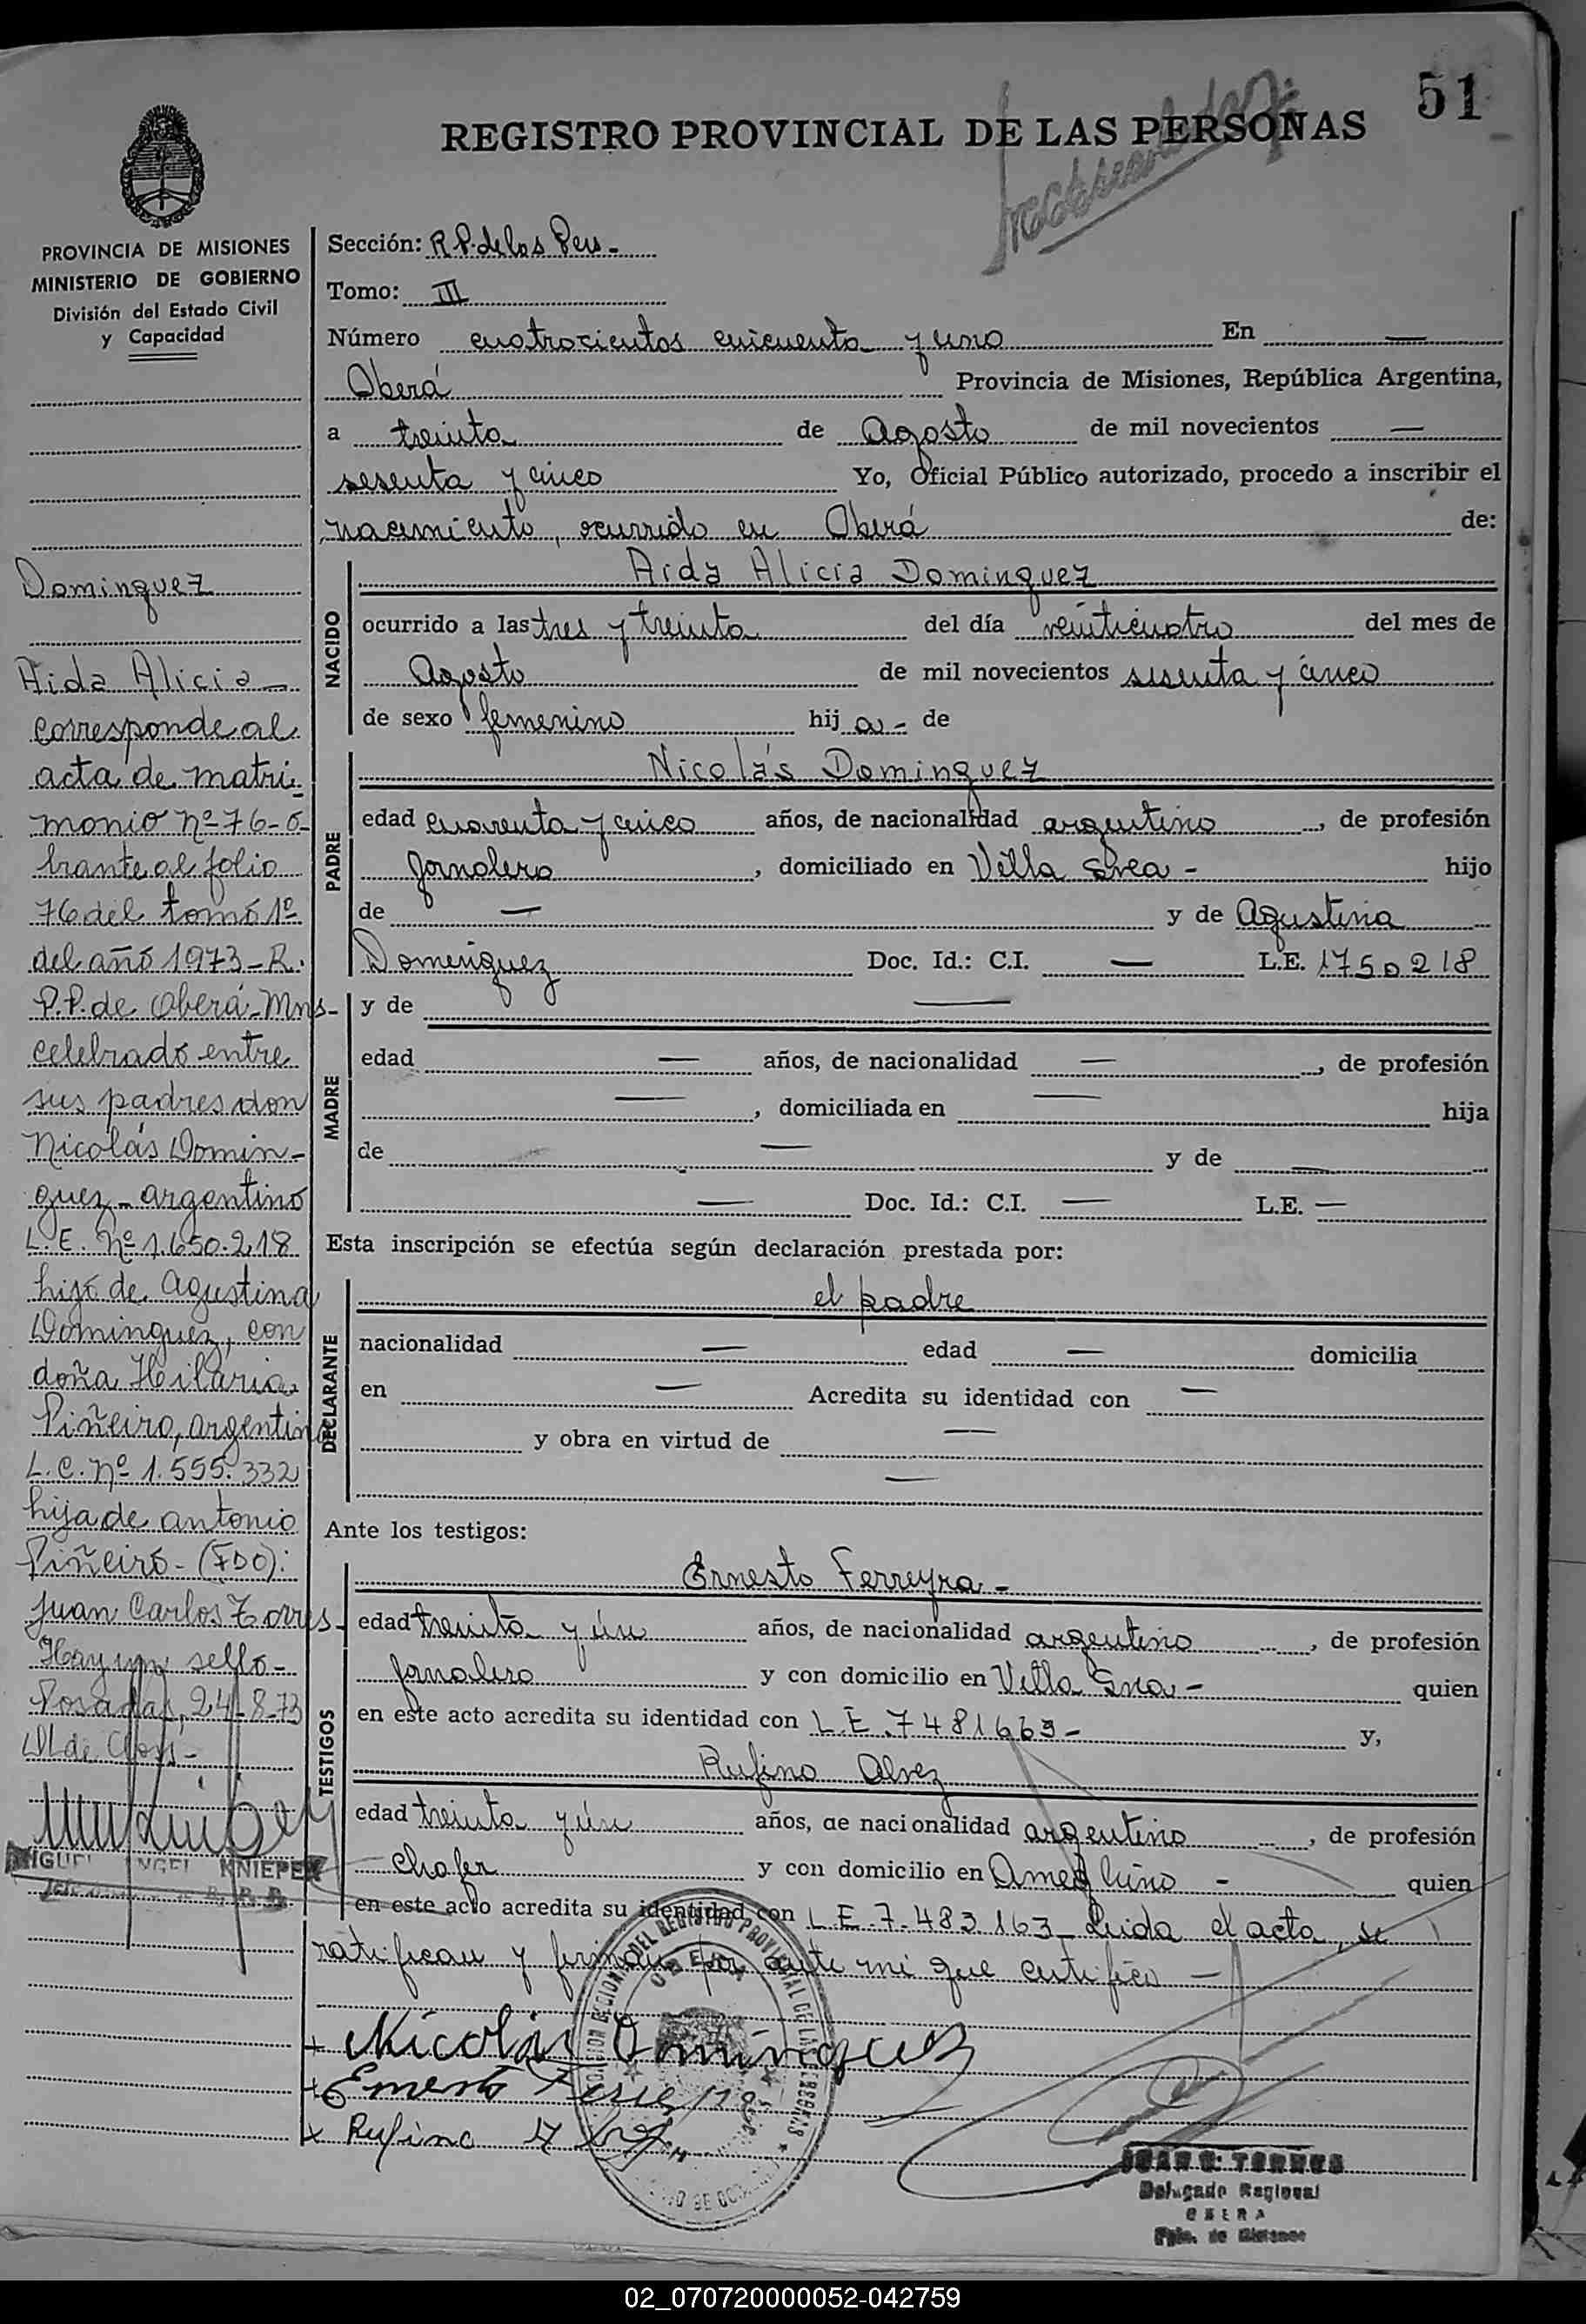 51
REGISTRO PROVINCIAL DE LAS PERSONAS
PROVINCIA DE MISIONES
MINISTERIO DE GOBIERNO
División del Estado Civil
y Capacidad
Dominguez
Aida Alicia
corresponde al
acta de matri-
monio nº 76-o-
brante al folio
76 del tomo 1º
del año 1973-R.
P.P. de Oberá-Mns-
celebrado entre
sus padres don
Nicolás Domin-
guez-argentino
L.E. Nº 1.650.218
hijo de Agustina
Dominguez, con
doña Hilaria
Piñeiro, argentina
L.C. Nº 1.555.332
hija de antonio
Piñeiro-(FDO):
Juan Carlos Torres-
Hay un sello-
Posadas, 24-8-73
MIGUEL ANGEL KNIEPER
Sección: R.P. de las Pers-
Tomo: III
Número cuatrocientos cincuenta y uno En —
Oberá Provincia de Misiones, República Argentina,
a treinta de Agosto de mil novecientos —
sesenta y cinco Yo, Oficial Público autorizado, procedo a inscribir el
nacimiento, ocurrido en Oberá de:
NACIDO
Aida Alicia Dominguez
ocurrido a las tres y treinta del día veinticuatro del mes de
Agosto de mil novecientos sesenta y cinco
de sexo femenino hij a- de
PADRE
Nicolás Dominguez
edad cuarenta y cinco años, de nacionalidad argentino, de profesión
Jornalero, domiciliado en Villa Svea - hijo
de — y de Agustina
Domenguez Doc. Id.: C.I. — L.E. 1750218
MADRE
y de —
edad — años, de nacionalidad —, de profesión
—, domiciliada en — hija
de — y de —
— Doc. Id.: C.I. — L.E. —
Esta inscripción se efectúa según declaración prestada por:
DECLARANTE
el padre
nacionalidad — edad — domicilia
en — Acredita su identidad con —
y obra en virtud de —
—
Ante los testigos:
TESTIGOS
Ernesto Ferreyra -
edad treinta y ún años, de nacionalidad argentino, de profesión
Jornalero y con domicilio en Villa Svea - quien
en este acto acredita su identidad con L.E. 7481663- y,
Rufino Alvez
edad treinta y ún años, de nacionalidad argentino, de profesión
Chofer y con domicilio en Ameghino - quien
en este acto acredita su identidad con L.E. 7.483.163- Leida el acta, se
ratifican y firman por ante mi que certifico —
+ Nicolás Dominguez
+ Ernesto Ferreyra
x Rufino
JUAN C. TORRES
Delegado Regional
OBERA
Pcia. de Misiones
02_070720000052-042759